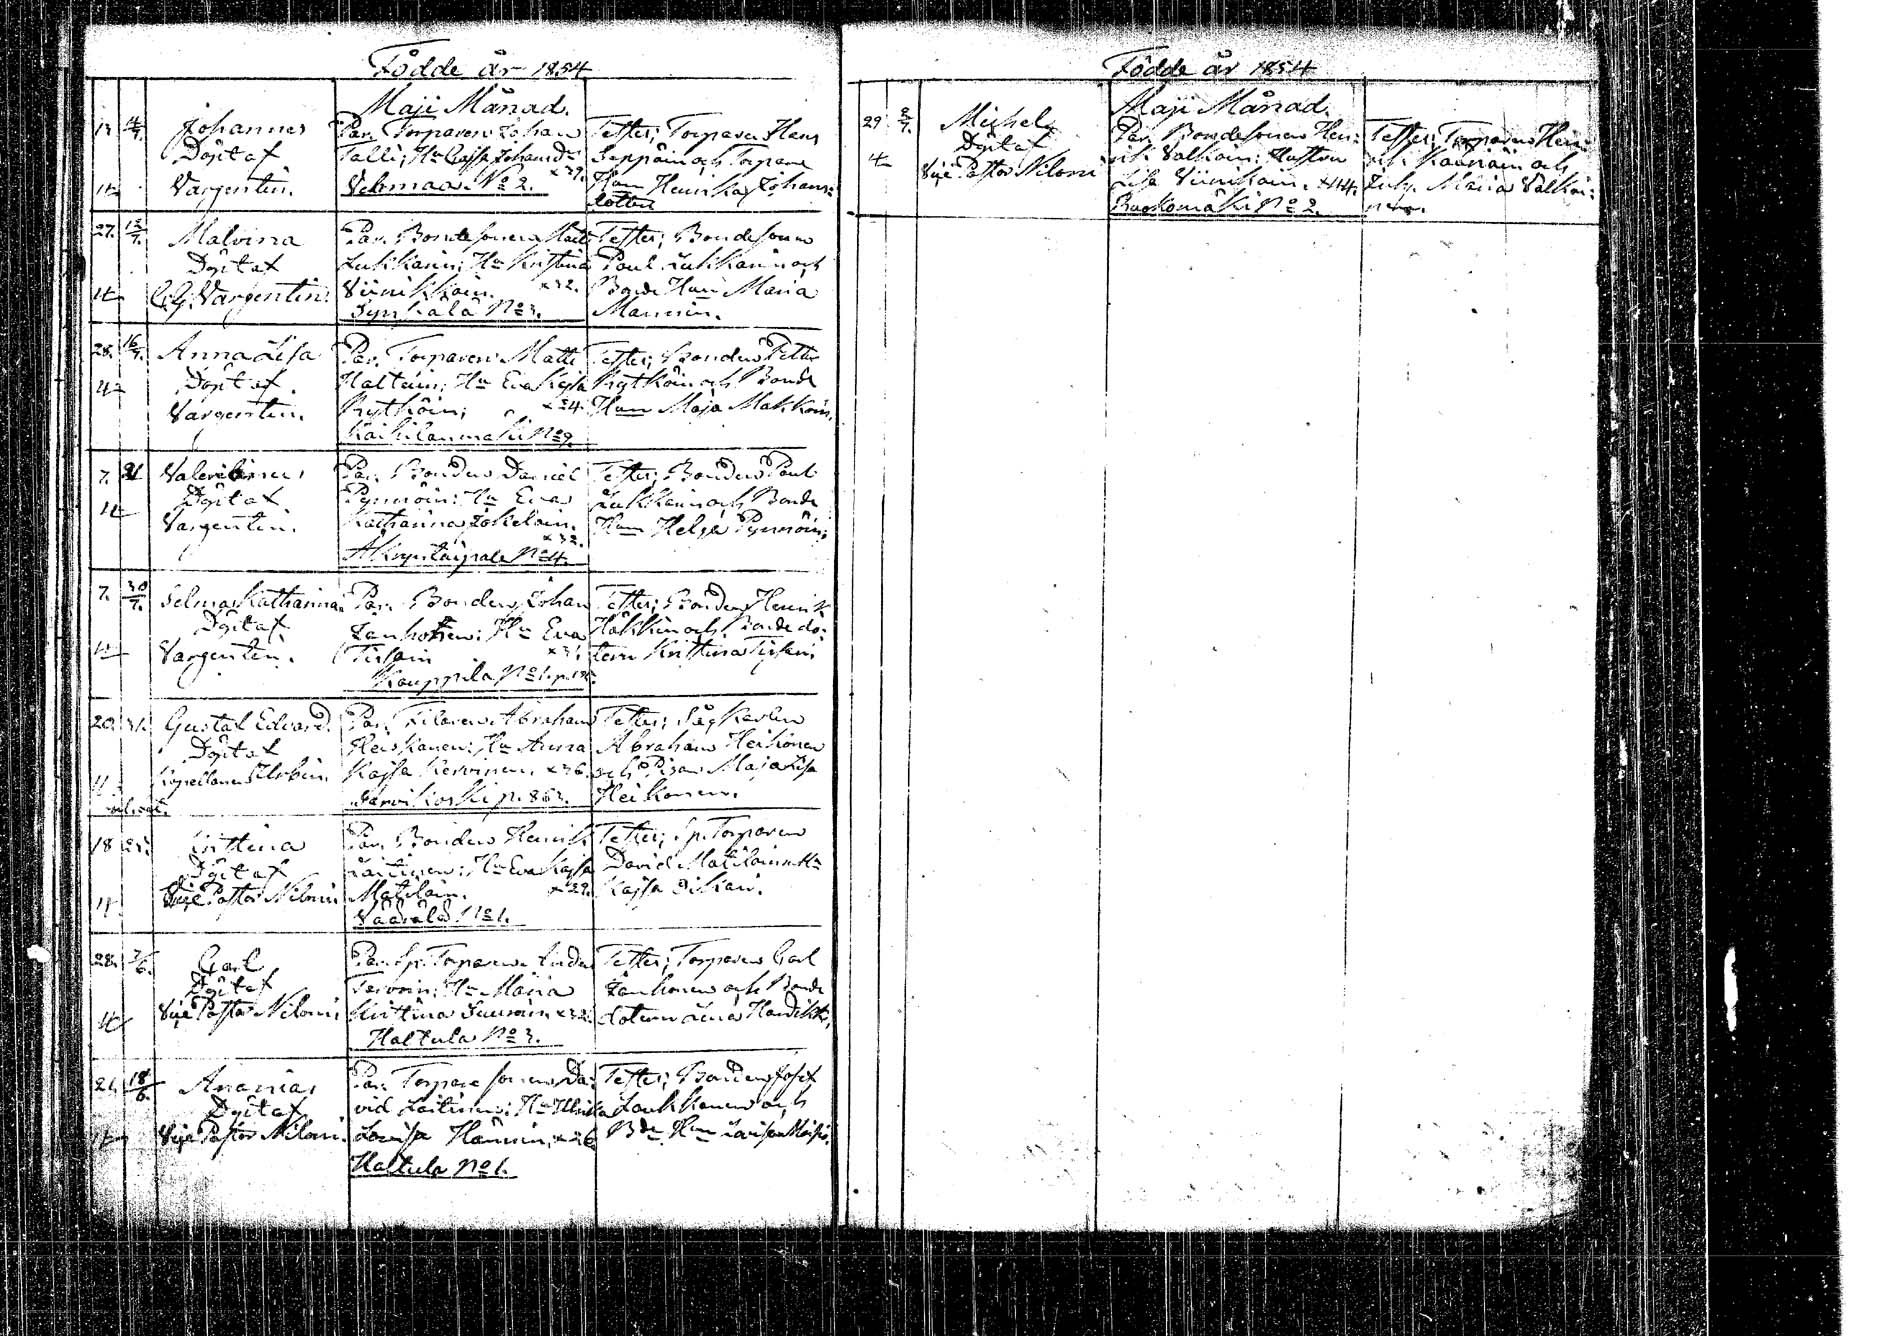 Födde år 1854
Maji Månad.
13. 14/7. Johannes
Döpt af
Vargentin.
Par. Torparen Johan
Talli; Hu Cajsa Johansdr
x 39.
Vehmaa No 2.
Testes; Torparen Hans
Seppäin och Torpare
Hun Henrika Johans-
dotter
27. 15/7. Malvina
Döpt af
C. G. Vargentin.
Par. Bondesonen Matts
Lukkarin; Hu Kristina
Viinikkain. x 32.
Synsälä No 3.
Testes; Bondesonen
Paul Lukkarin och
Bonde Hun Maria
Mannin.
28. 16/7. Anna Lisa
Döpt af
Vargentin.
Par. Torparen Matts
Haltuin; Hu Eva Kajsa
Rytköin; x 34.
Kaihilanmäki No 9.
Testes; Bonden Petter
Rytköin och Bonde
Hun Maja Makkoin.
7. 21 Valerianus
Döpt af
Vargentin.
Par. Bonden Daniel
Pynnöin: Hu Eva
Katharina Jokelain.
x 32.
No 4.
Testes; Bonden Paul
Lukkarin och Bonde
Hun Helga Pynnöin;
7. 30/7. Selma Katharina
Döpt af
Vargentin.
Par. Bonden Johan
Janhonen: Hu Eva
Tissari x 31.
Kauppila No 1.
Testes; Bonden Henrik
Häkkin och Bonde do-
tern Kristina Tissari
20. 31. Gustaf Edvard.
Döpt af
Kapellanen
Par. Abraham
Heiskanen: Hu Anna
Kajsa Kervinen. x 36.
Sarvikoski p. 863.
Testes; Sågkarlen
Abraham Heikonen
och Pigan Maja Lisa
Heikonen.
18 Kristina
Döpt af
Vice Pastor Niloni
Par. Bonden Henrik
Laitinen: Hu Eva Kajsa
Matilain. x 29.
Väärälä No 1.
Testes; Sp. Torparen
David Matilain Hu
Kajsa
28. 5/6. Carl
Döpt af
Vice Pastor Niloni
Par. Sp. Torparen Anders
Tervoin; Hu Maria
Kristina x 32.
Haltula No 3.
Testes; Torparen Carl
Janhonen och Bonde
dotern Lena
21. 18/6. Ananias
Döpt af
Vice Pastor Niloni.
Par. Torpare sonen Da-
vid Laitinen: Hu Ulrika
Lovisa Hännin. x 26.
Haltula No 1.
Testes; Bonden Josef
Laukkanen och
Bde Hun Lovisa
Födde år 1854
Maji Månad.
29 8/7. Michel
Döpt af
Vice Pastor Niloni
Par. Bondesonen Hen-
rik Valkoin: Hustrun
Lisa Viinikain. x 44.
Ruokomäki No 2.
Testes; Torparen Hen-
rik och
Maria Valkoi-
nen.